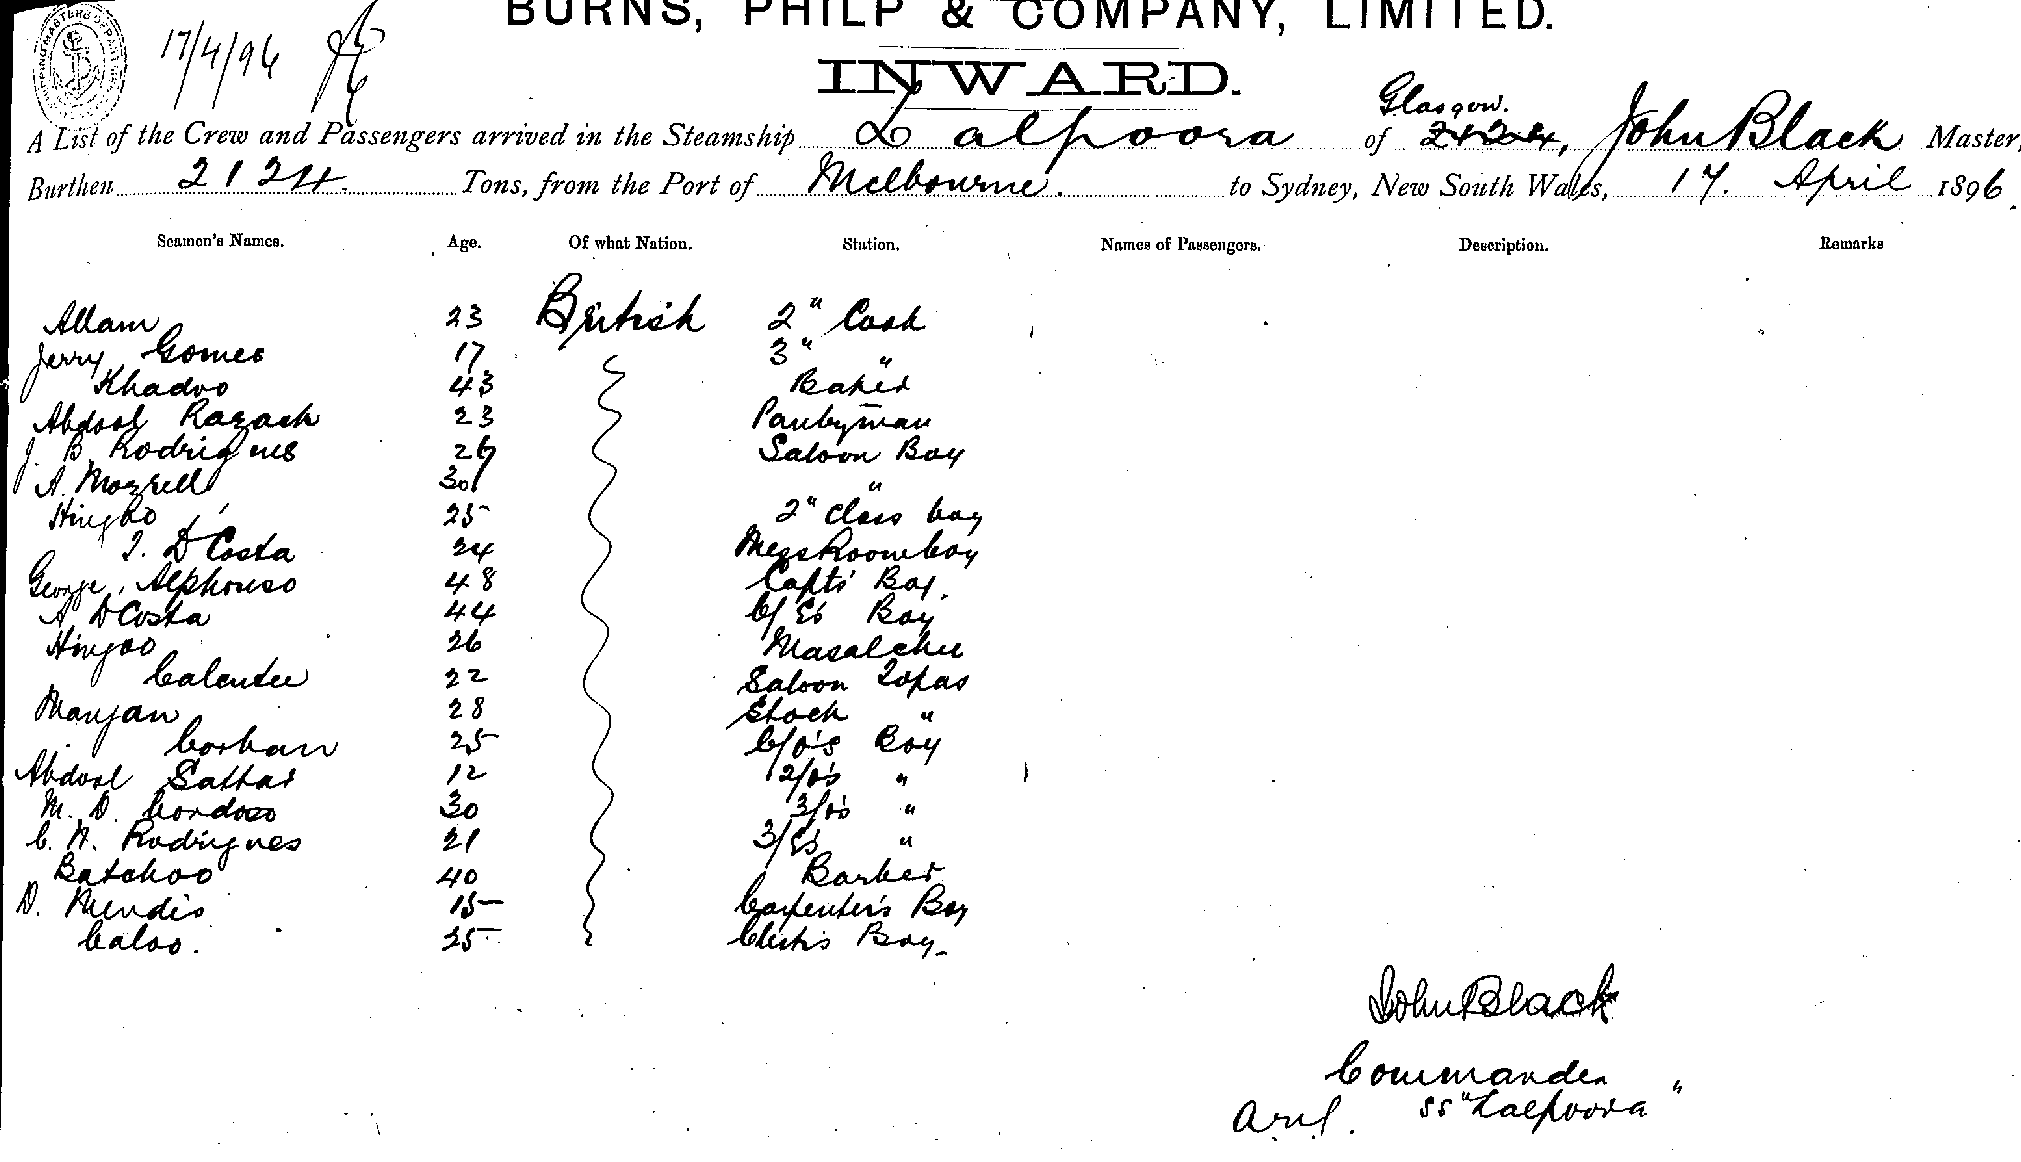 BURNS, PHILP & COMPANY, LIMITED.
17/4/96
INWARD.
Glasgow.
A List of the Crew and Passengers arrived in the Steamship Lalpoora of 2124, John Black Master,
Burthen 2124 Tons, from the Port of Melbourne. to Sydney, New South Wales, 17. April 1896.
Seamen's Names. Age. Of what Nation. Station. Names of Passengers. Description. Remarks
Allam 23 British 2" Cook
Jerry Gomes 17 3" "
Khadoo 43 Baker
Abdool Razack 23 Pantryman
J. B. Rodrigues 26 Saloon Boy
A. Mozrell 30 "
Hingoo 25 2" Class boy
T. D'Costa 24 Messroomboy
George Alphonso 48 Capts' Boy.
A. D'Costa 44 C/E's Boy
Hingoo 26 Masalchee
Calentee 22 Saloon Topas
Manjan 28 Stock "
Corban 25 C/O's Boy
Abdool Sattar 12 2/O's "
M. D. Cordoso 30 3/O's "
C. A. Rodrigues 21 3/E's "
Batchoo 40 Barber
D. Mendis 15 Carpenter's Boy
Caloo. 25 Clerk's Boy.
John Black
Commander
ss "Lalpoora"